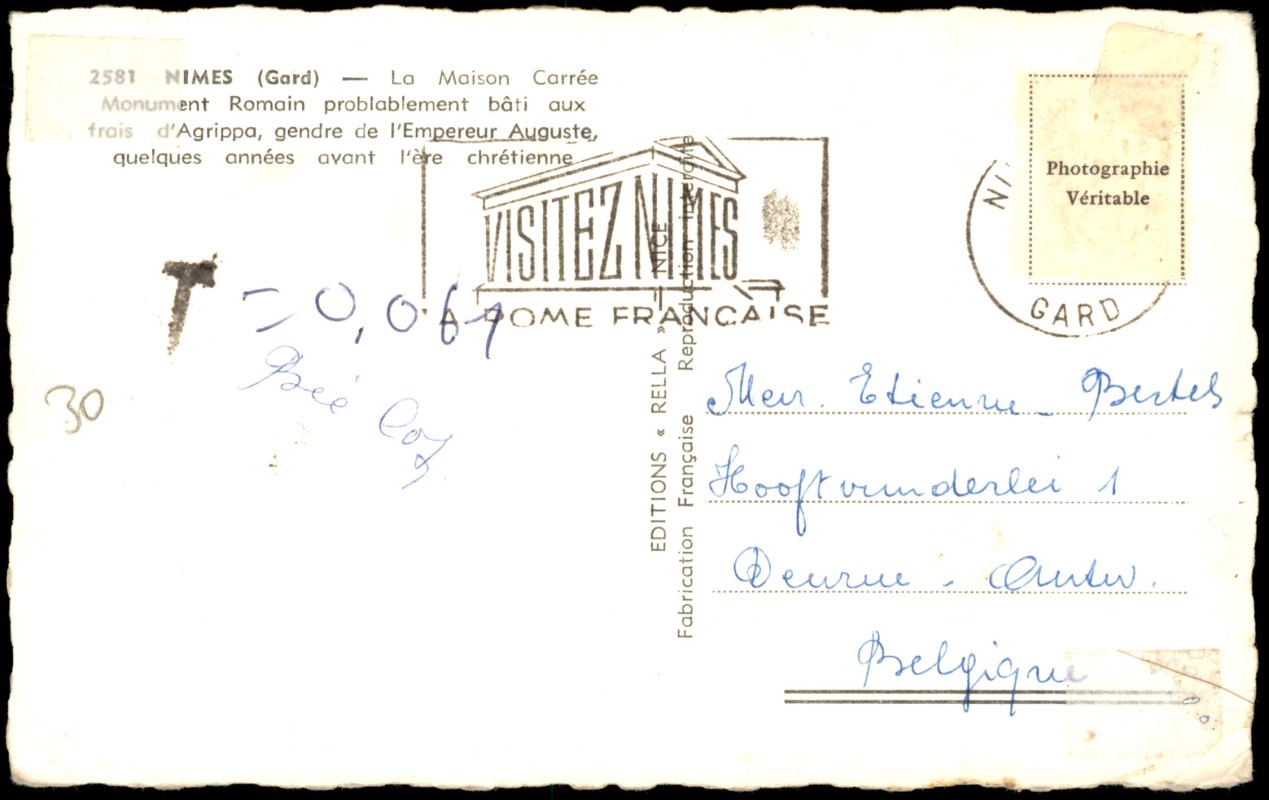 2581 NIMES (Gard) — La Maison Carrée
Monument Romain problablement bâti aux
frais d'Agrippa, gendre de l'Empereur Auguste,
quelques années avant l'ère chrétienne
VISITEZ NIMES
ROME FRANÇAISE
Photographie
Véritable
NI
GARD
T = 0,0
30
EDITIONS « RELLA » NICE
Fabrication Française Reproduction Interdite
Etienne Bertels
Hooftvunderlei 1
Deurne - Antw.
Belgique